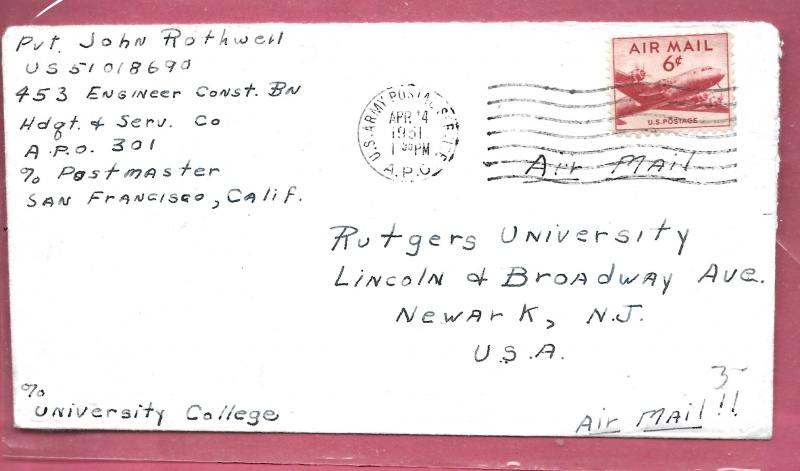 Pvt. John Rothwell
US 51018690
453 Engineer Const. BN
Hdqt. & Serv. Co
A.P.O. 301
% Postmaster
San Francisco, Calif.
U.S. ARMY POSTAL SERVICE
APR 14
1951
1 30 PM
A.P.O.
AIR MAIL
6¢
U.S. POSTAGE
Air Mail
Rutgers University
Lincoln & Broadway Ave.
Newark, N.J.
U.S.A.
3-
%
University College
Air Mail!!